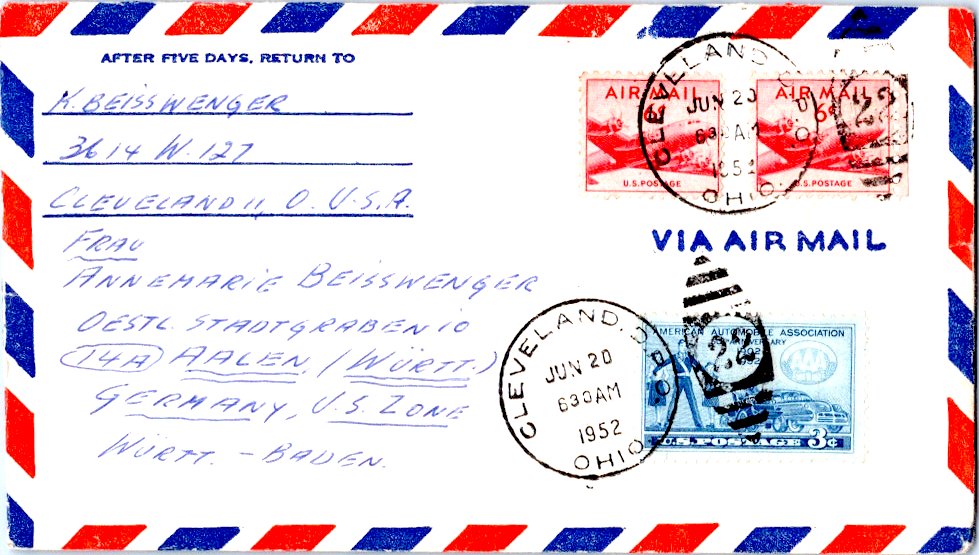 AFTER FIVE DAYS, RETURN TO
K. BEISSWENGER
3614 W. 127
CLEVELAND 11, O. U.S.A.
AIR MAIL
6¢
U.S. POSTAGE
AIR MAIL
6¢
U.S. POSTAGE
CLEVELAND, O.
JUN 20
630 AM
1952
OHIO
22
VIA AIR MAIL
FRAU
ANNEMARIE BEISSWENGER
OESTL. STADTGRABEN 10
14A AALEN (WÜRTT.)
GERMANY, U.S. ZONE
WÜRTT. - BADEN.
CLEVELAND, O.
JUN 20
630AM
1952
OHIO
22
AMERICAN AUTOMOBILE ASSOCIATION
ANNIVERSARY
U.S. POSTAGE 3¢